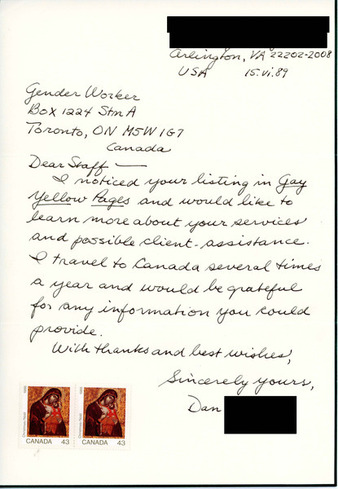 Arlington, VA 22202-2008
USA 15.vi.89
Gender Worker
Box 1224 Stn A
Toronto, ON M5W 1G7
Canada
Dear Staff —
I noticed your listing in Gay
Yellow Pages and would like to
learn more about your services
and possible client-assistance.
I travel to Canada several times
a year and would be grateful
for any information you could
provide.
With thanks and best wishes,
Sincerely yours,
Dan
CANADA 43
CANADA 43